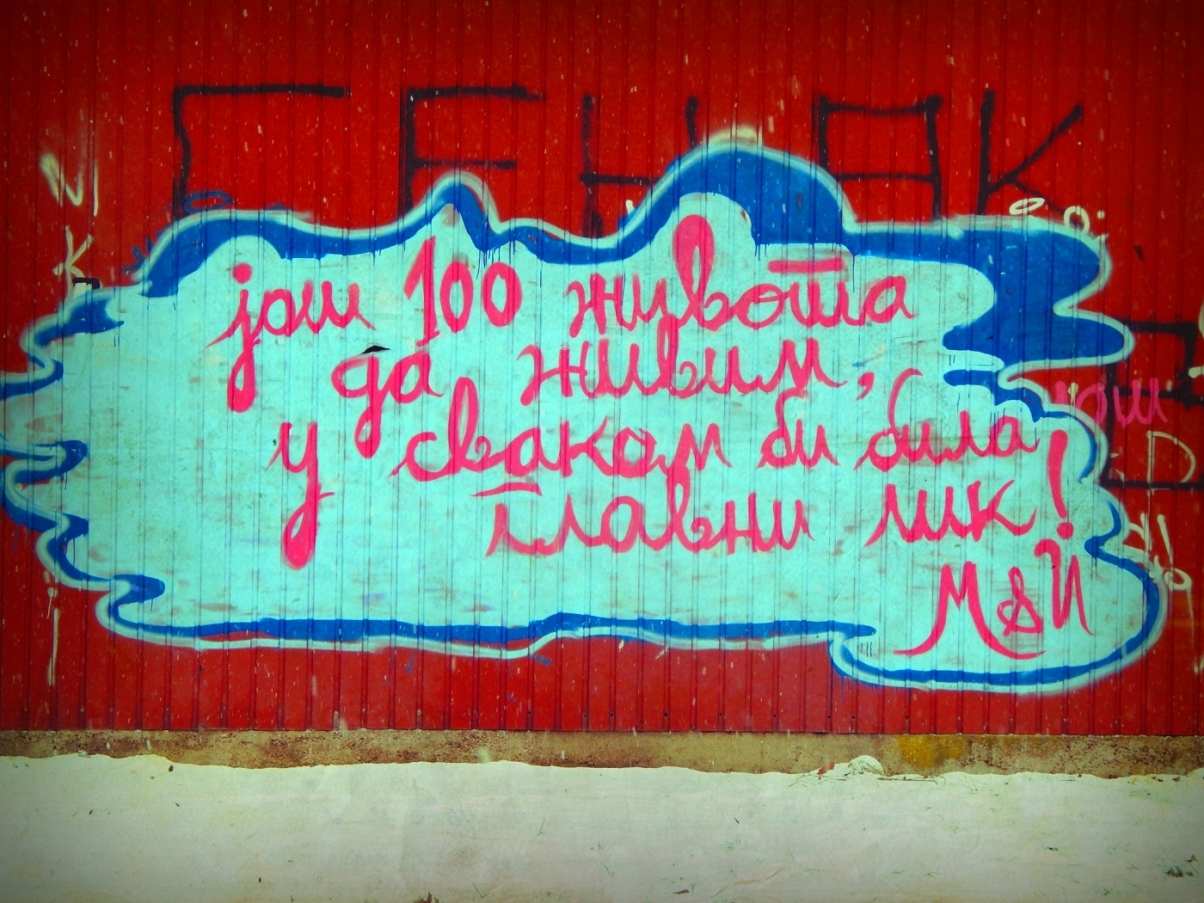 ГЕНАК
још 100 живота
да живим,
у сваком би била
главни лик!
М&Й